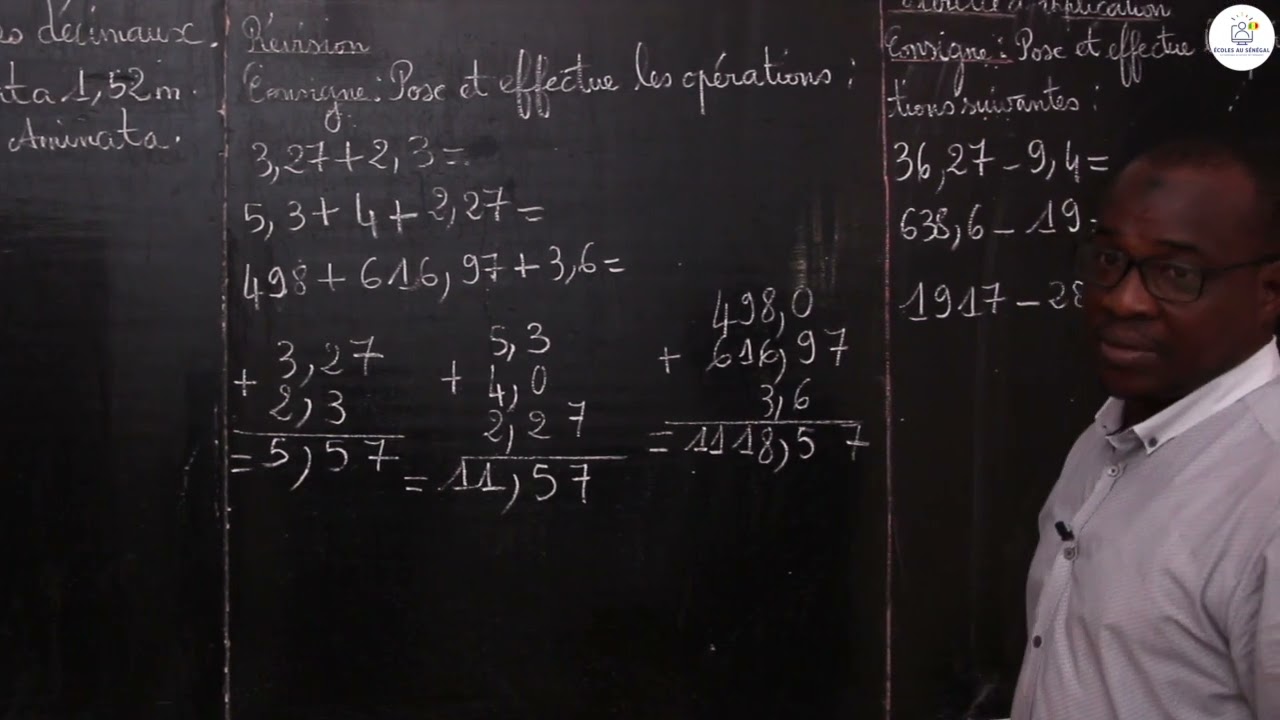 décimaux.
1,52 m.
Aminata.
Révision
Consigne : Pose et effectue les opérations :
3,27 + 2,3 =
5,3 + 4 + 2,27 =
498 + 616,97 + 3,6 =
3,27
+ 2,3
= 5,57
5,3
+ 4,0
2,27
= 11,57
498,0
+ 616,97
3,6
= 1118,57
Consigne : Pose et effectue
tions suivantes :
36,27 - 9,4 =
638,6 - 19
1917 - 28
ÉCOLES AU SÉNÉGAL